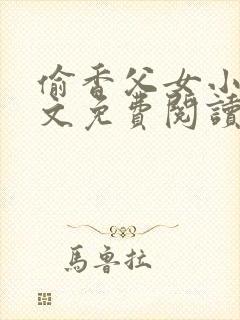 偷香父女小
文免費閱讀
馬魯拉